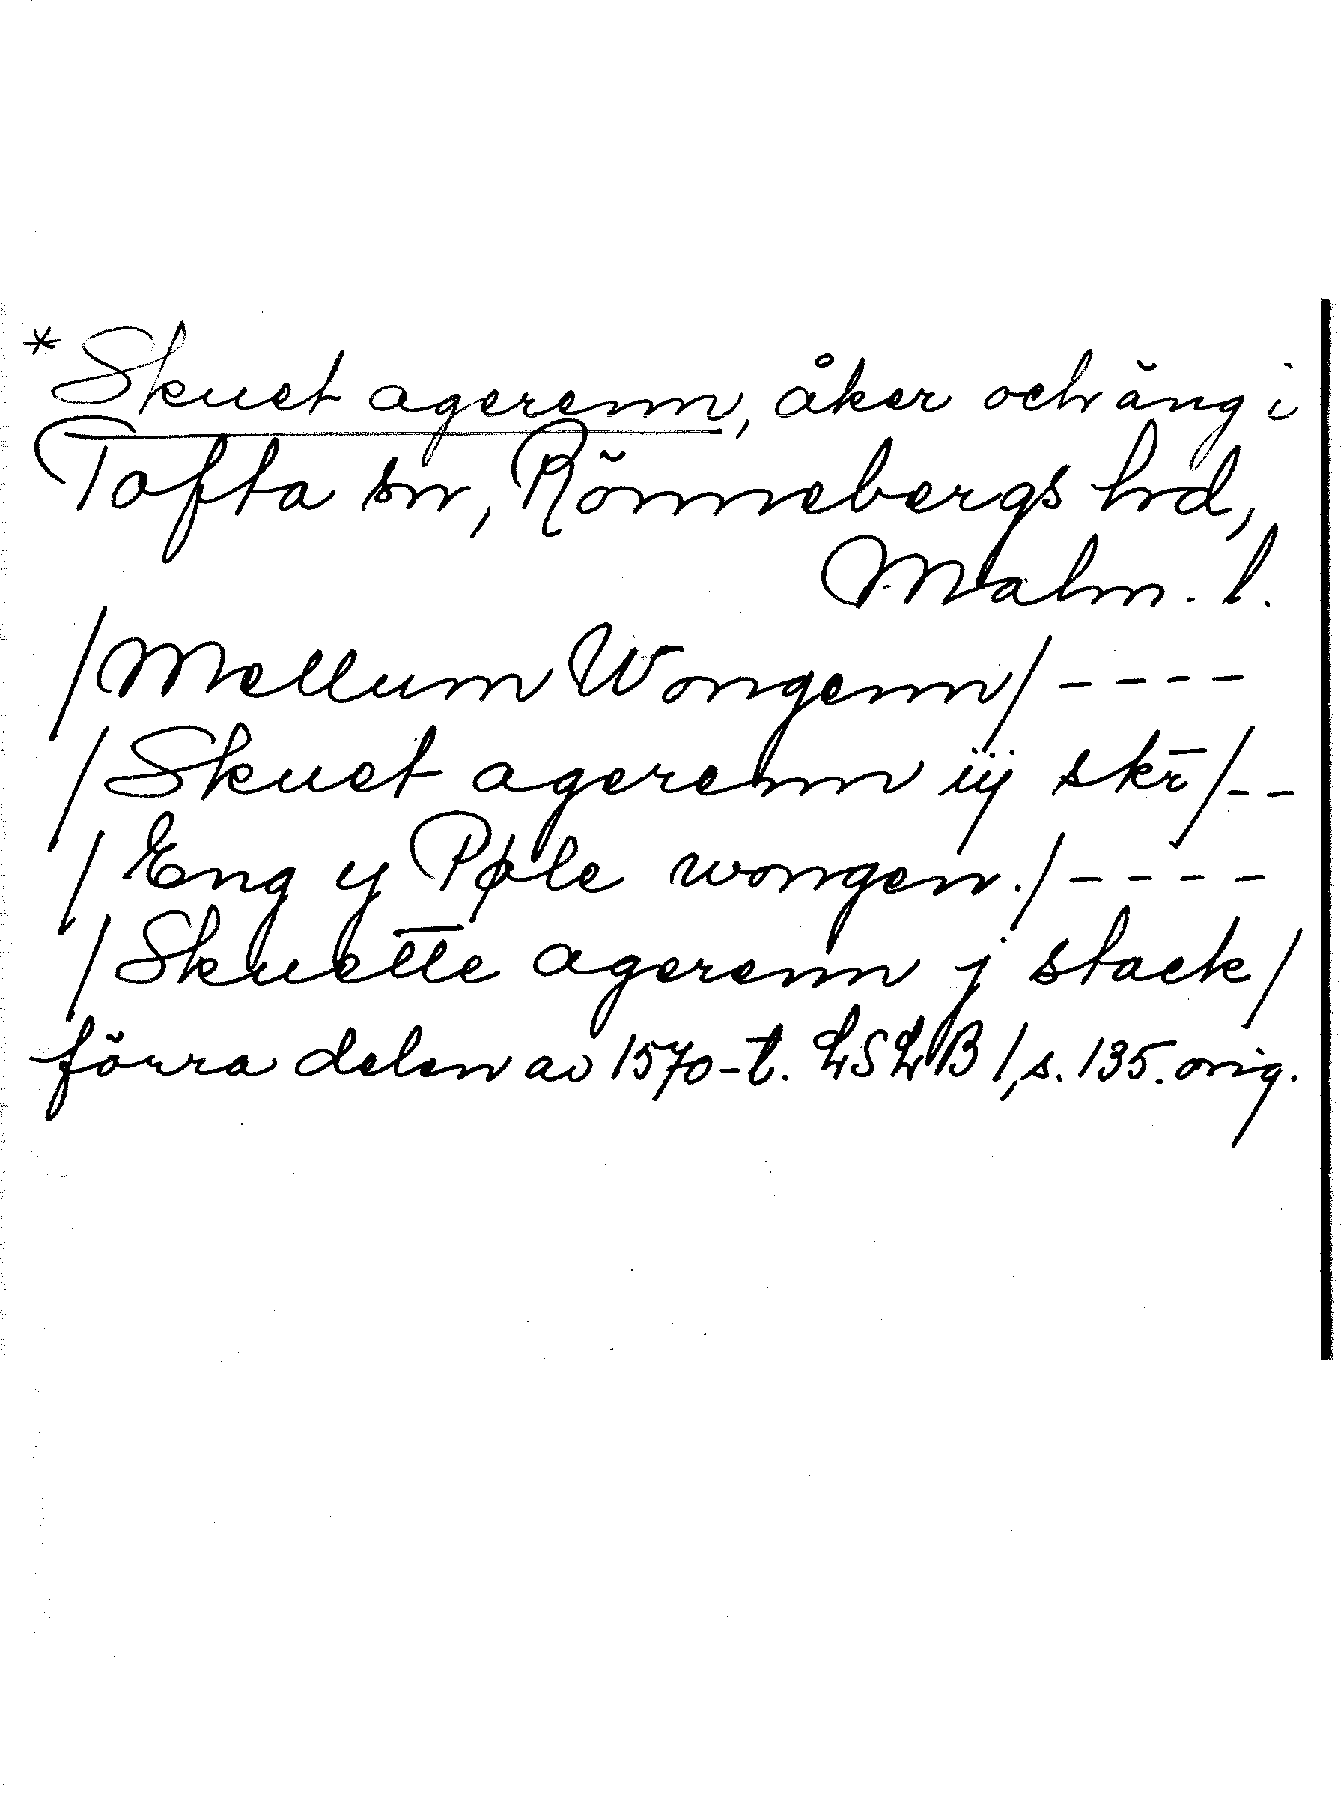 *Skuet agerenn, åker och äng i
Tofta sn, Rönnebergs hd,
Malm. l.
/Mellum Wongenn/ ----
/Skuet agerenn iij skr̄/--
/Eng y Pøle wongen./----
/Skuette agerenn j stack/
förra delen av 1570-t. LSLB 1, s. 135. orig.